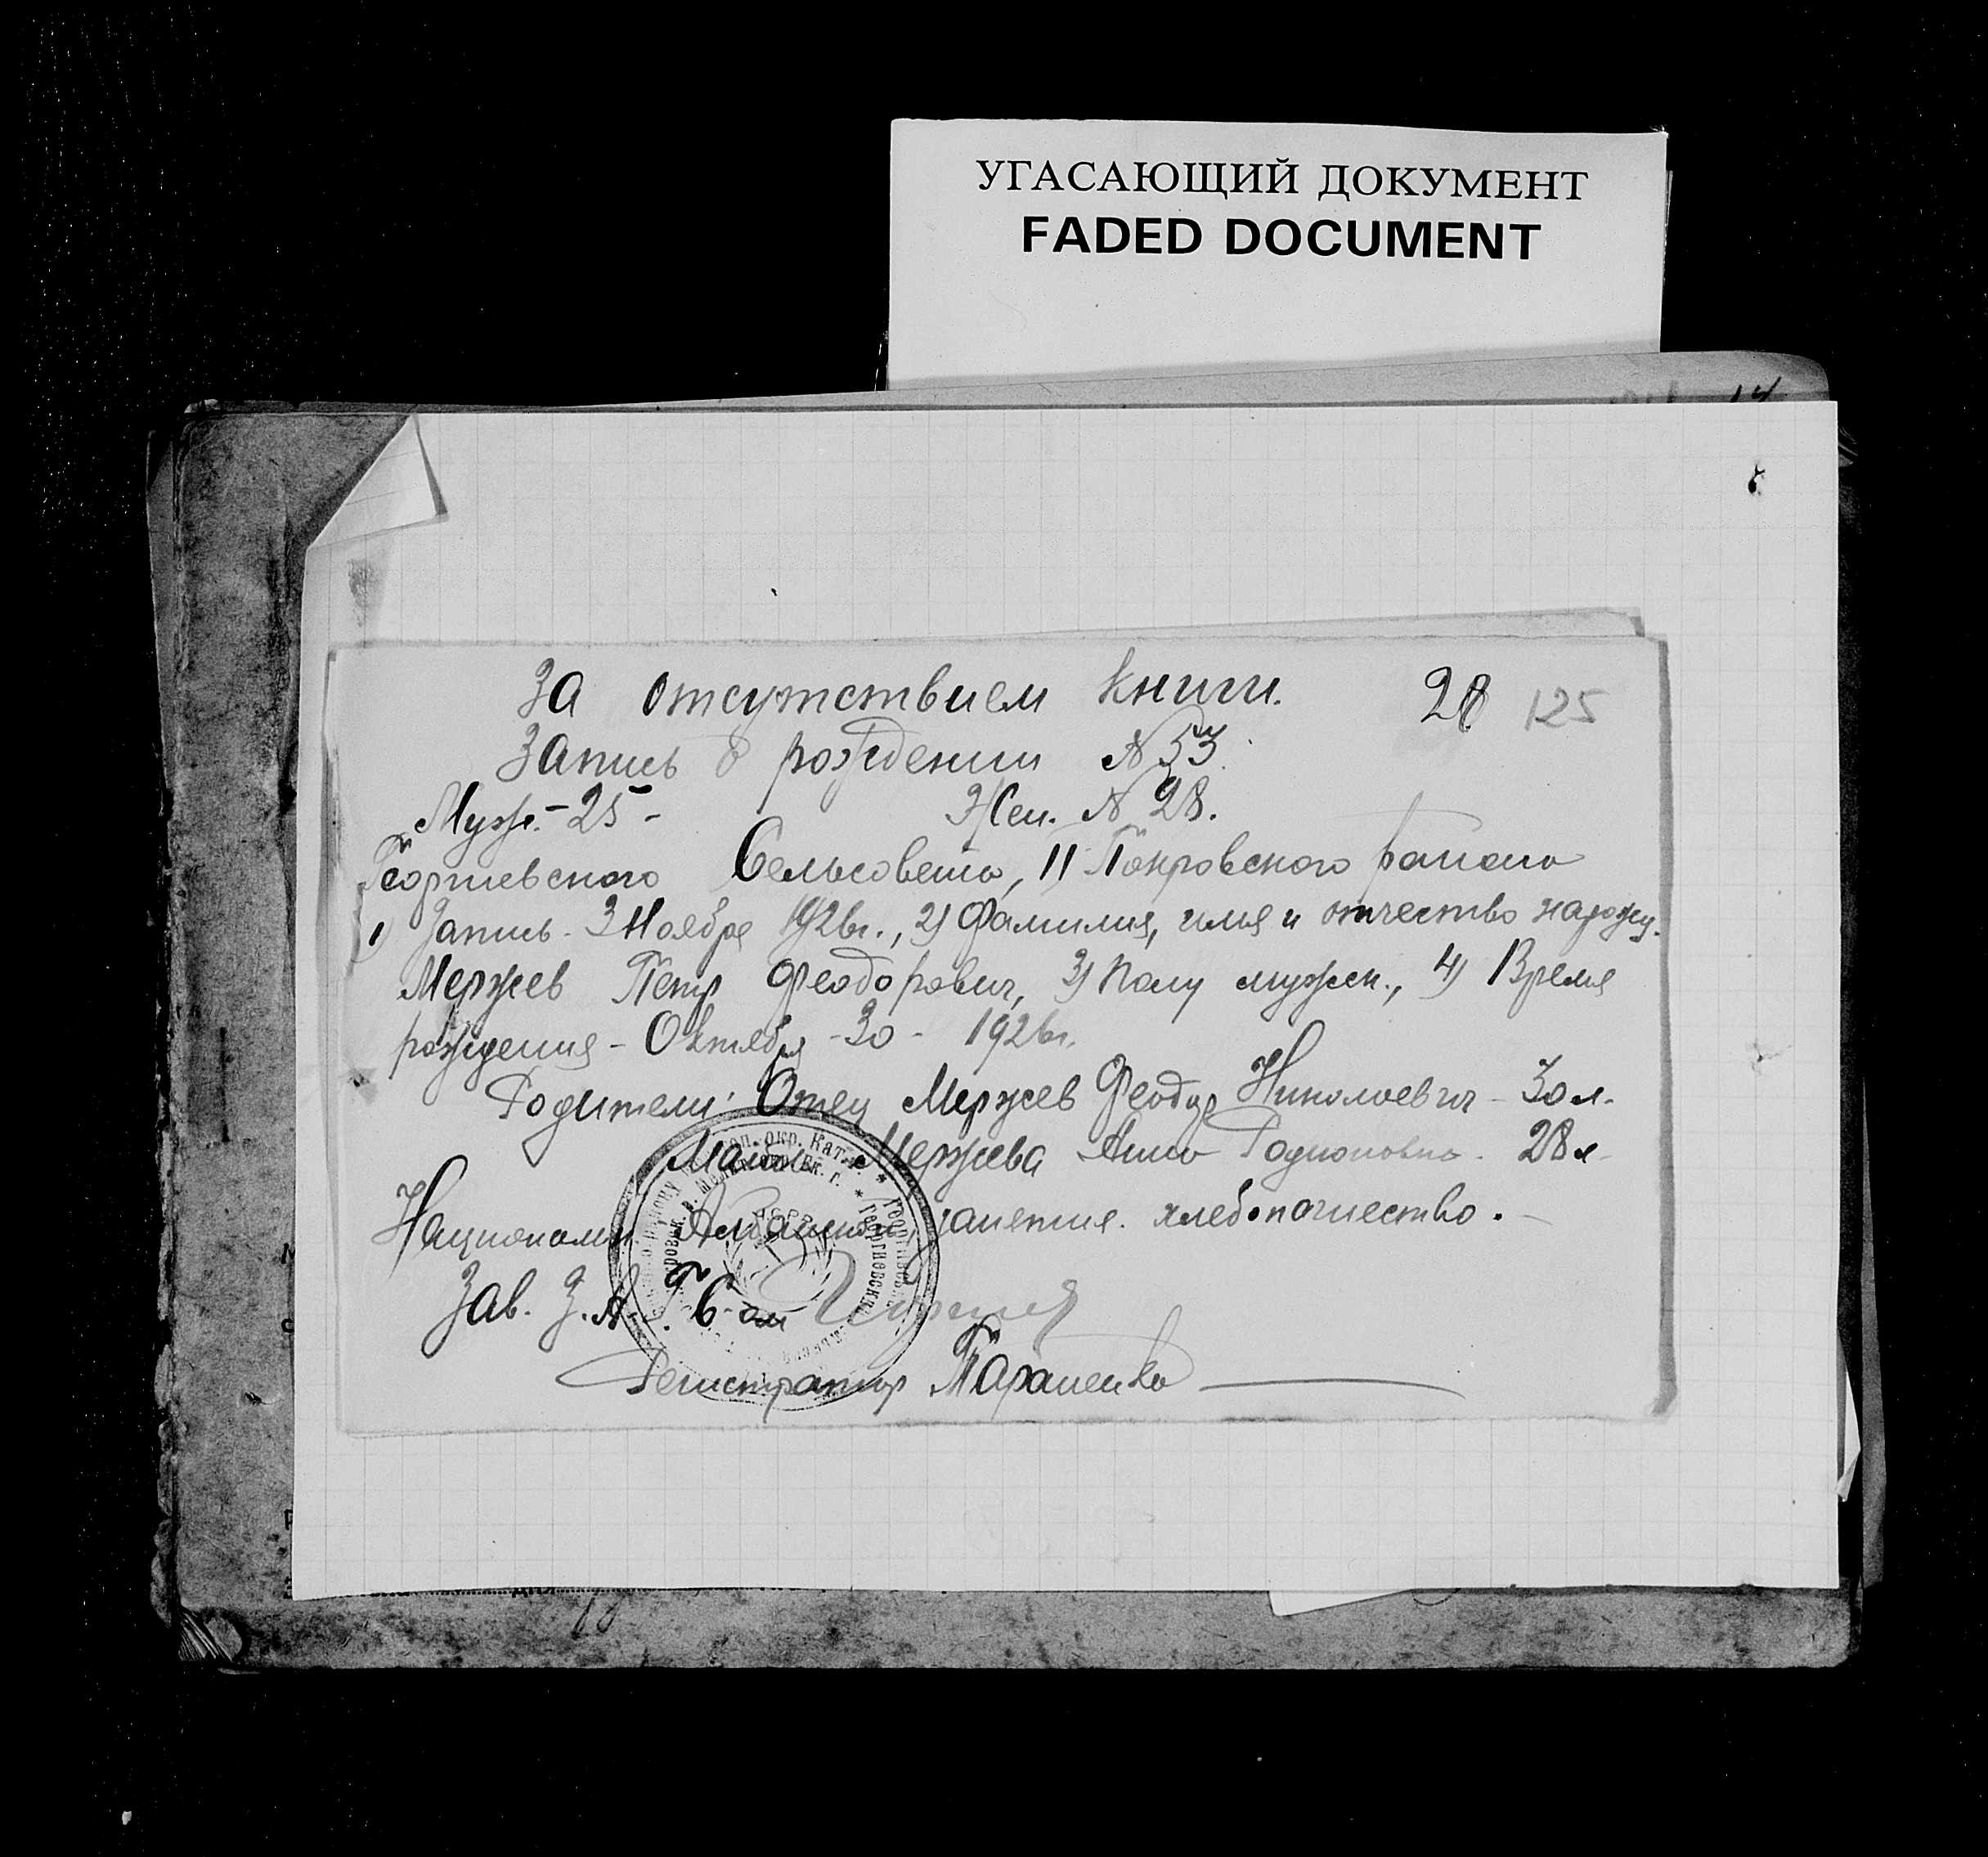 УГАСАЮЩИЙ ДОКУМЕНТ
FADED DOCUMENT
За отсутствием книги. 28 125
Запись о рождении N 53.
Мужс. - 25 - Жен. N 28.
Георгиевского Сельсовета, II Покровского района
1) Запись 3 Ноября 1926г., 2) Фамилия, имя и отчество
Мержев Петр Феодорович, 3) Полу мужск., 4) Время
рождения - Октября - 30 - 1926г.
Родители: Отец Мержев Феодор Николаевич - 30 л.
Мать Мержева Анна Родионовна. 28 л.
Национальн. занятия. хлебопашество. -
Зав. З.А.
Регистратор Параненко